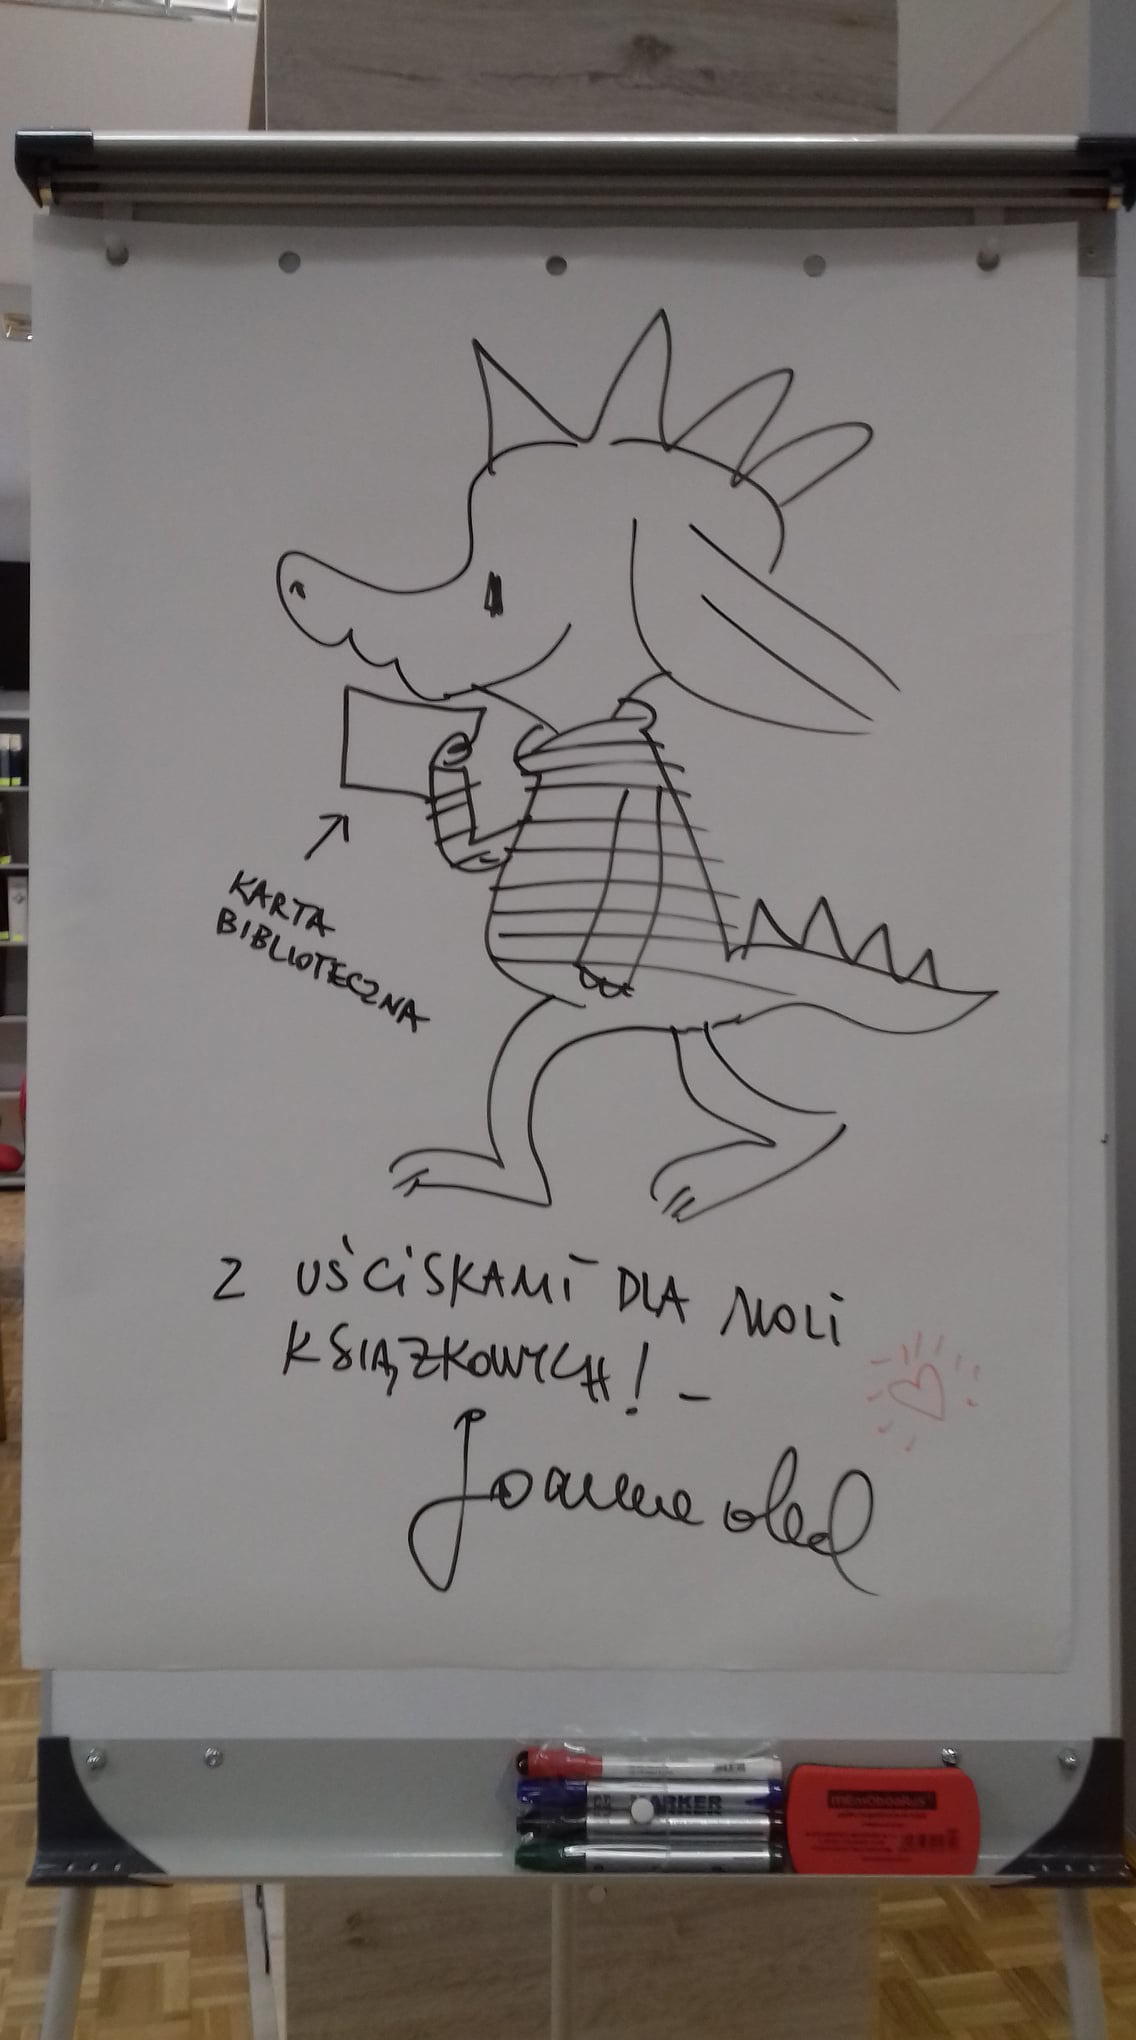 KARTA
BIBLIOTECZNA
Z UŚCISKAMI DLA MOLI
KSIĄŻKOWYCH! -
Joanna Olech
MARKER
memoboards